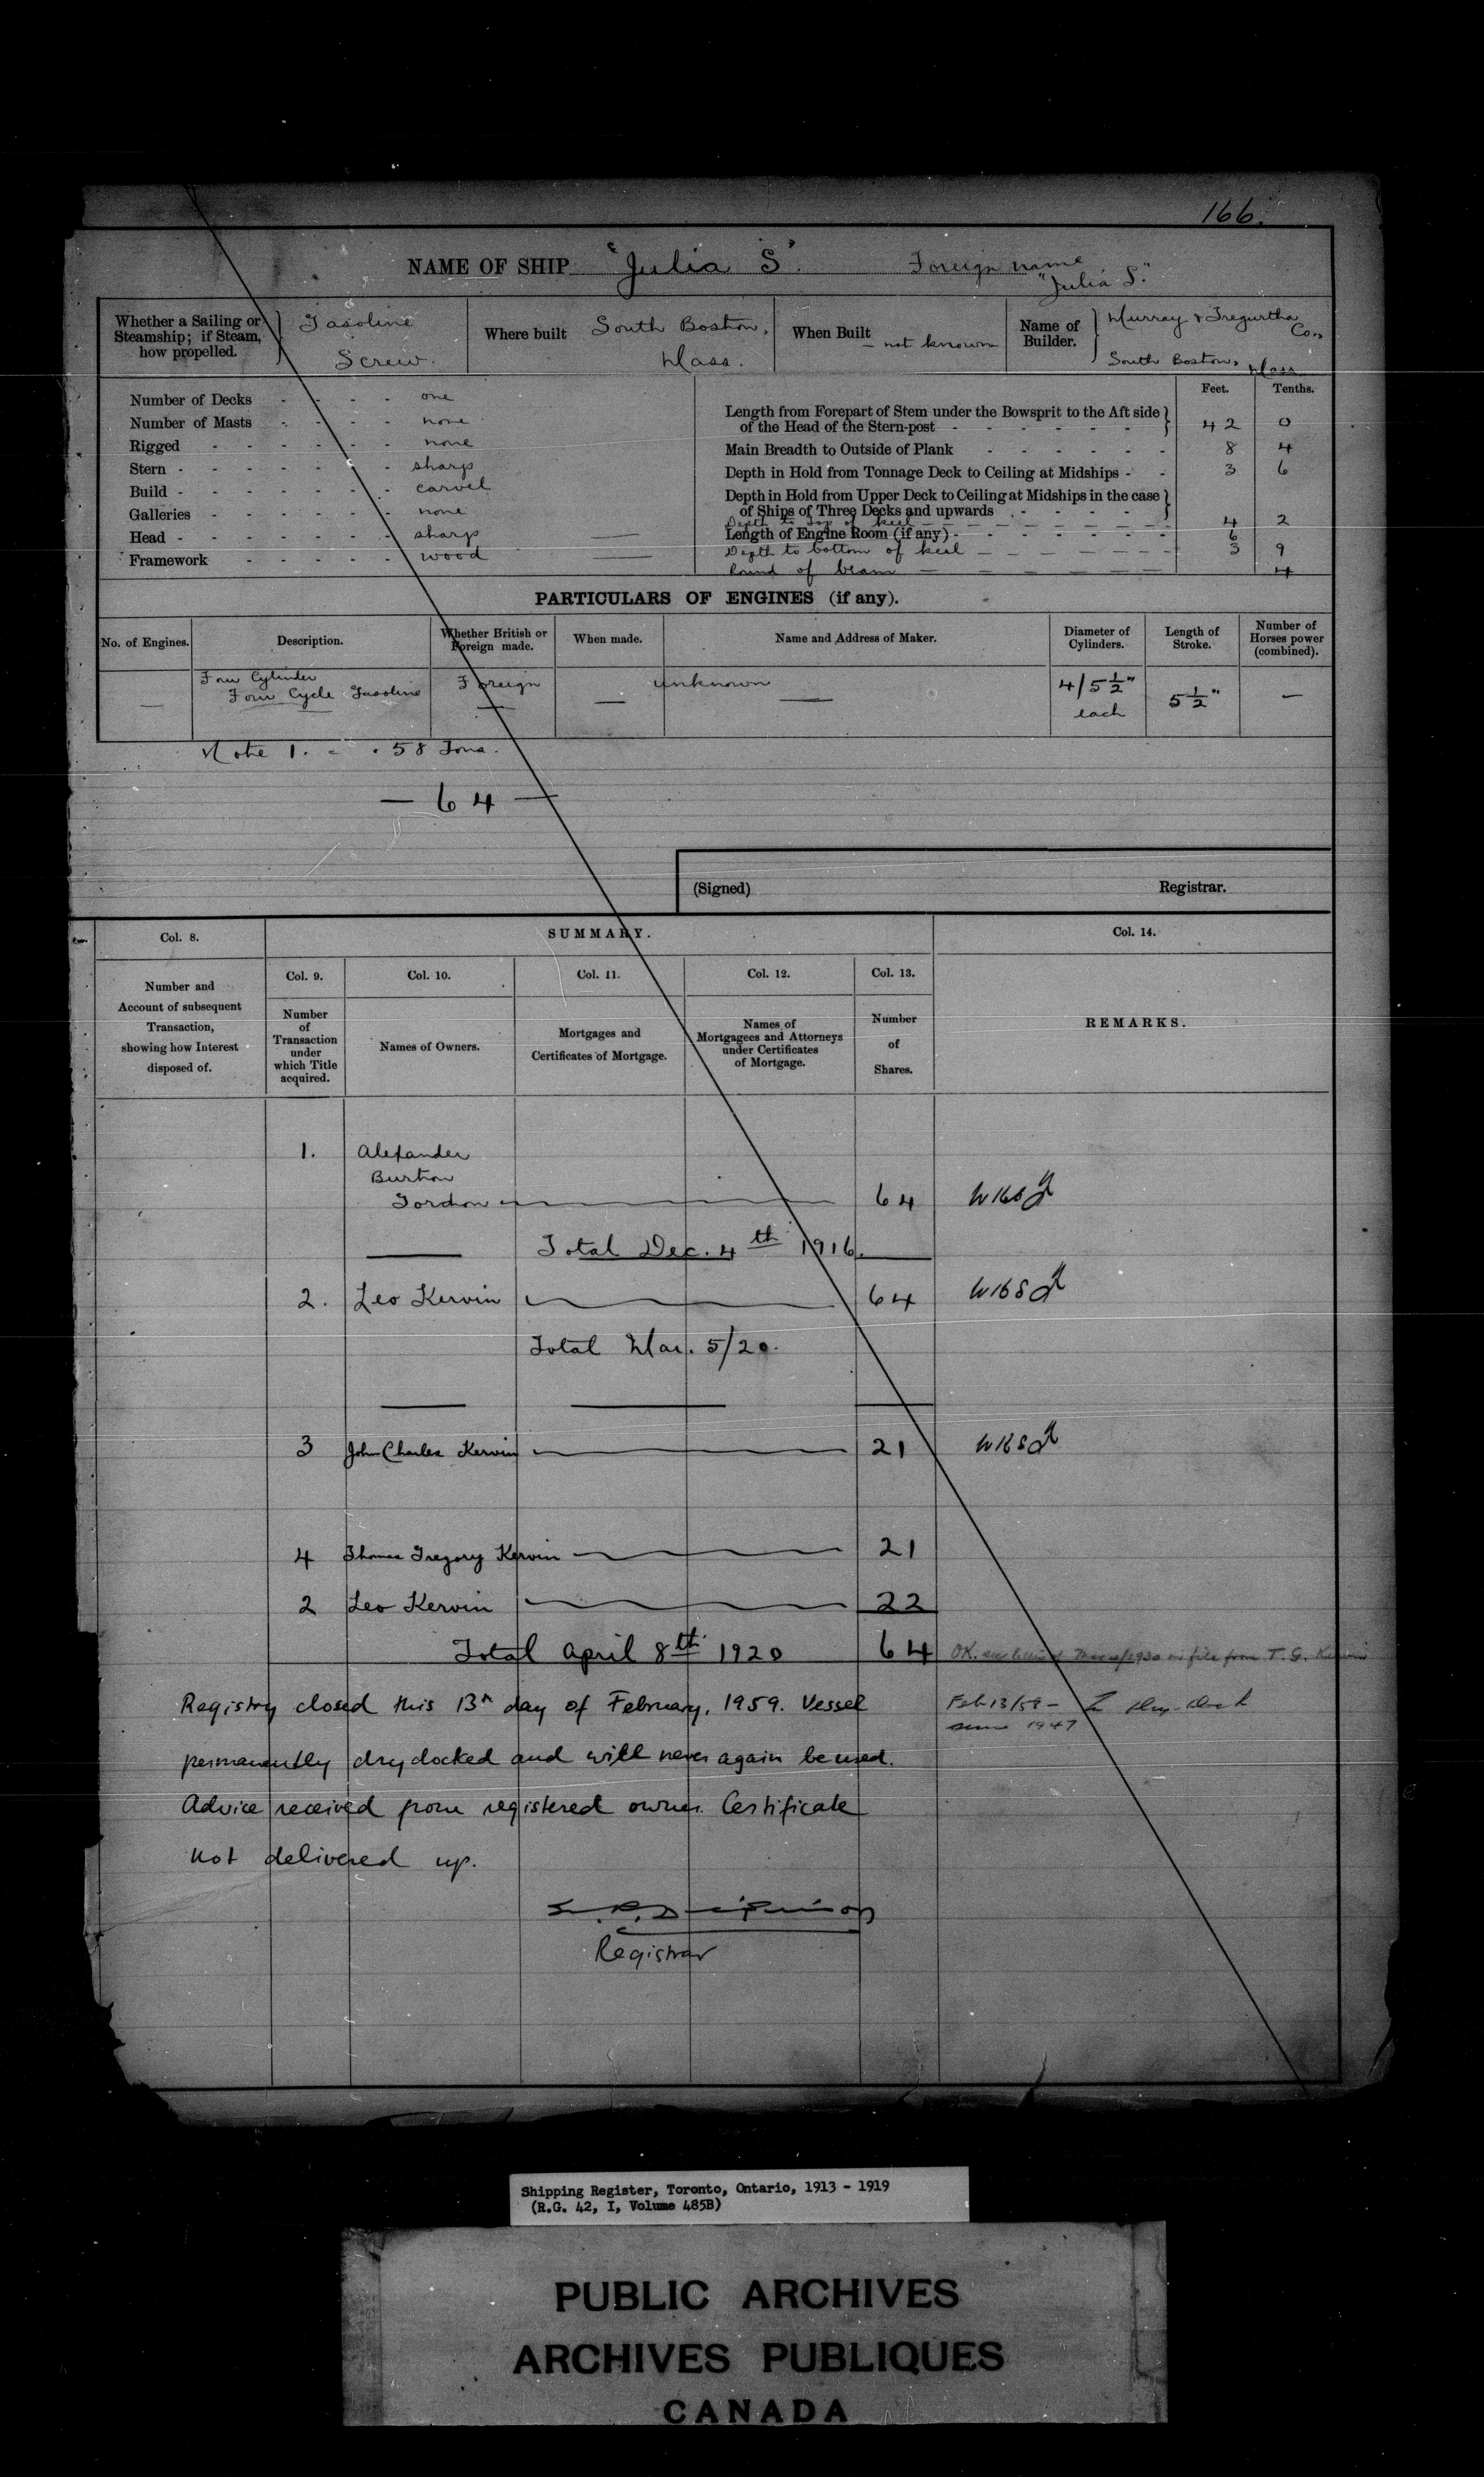 166.
NAME OF SHIP "Julia S". Foreign name
"Julia S."
Whether a Sailing or Steamship; if Steam, how propelled. Gasoline Screw.
Where built South Boston, Mass.
When Built - not known
Name of Builder. Murray & Tregurtha Co., South Boston, Mass
Feet. Tenths.
Number of Decks - - - - one
Number of Masts - - - - none
Rigged - - - - - - none
Stern - - - - - - - sharp
Build - - - - - - - carvel
Galleries - - - - - - none
Head - - - - - - - sharp
Framework - - - - - wood
Length from Forepart of Stem under the Bowsprit to the Aft side
of the Head of the Stern-post - - - - - - 42 0
Main Breadth to Outside of Plank - - - - - - 8 4
Depth in Hold from Tonnage Deck to Ceiling at Midships - - 3 6
Depth in Hold from Upper Deck to Ceiling at Midships in the case
of Ships of Three Decks and upwards - - - -
Depth to top of keel - - - - - - - 4 2
Length of Engine Room (if any) - - - - - - - 6
Depth to bottom of keel - - - - - - - 3 9
Round of beam - - - - - - 4
PARTICULARS OF ENGINES (if any).
No. of Engines. Description. Whether British or Foreign made. When made. Name and Address of Maker. Diameter of Cylinders. Length of Stroke. Number of Horses power (combined).
— Four Cylinder Four Cycle Gasoline Foreign — unknown 4/5½" each 5½" —
Note 1. = .58 Tons.
— 64 —
(Signed) Registrar.
Col. 8. SUMMARY. Col. 14.
Col. 9. Col. 10. Col. 11. Col. 12. Col. 13.
Number and Account of subsequent Transaction, showing how Interest disposed of.
Number of Transaction under which Title acquired.
Names of Owners.
Mortgages and Certificates of Mortgage.
Names of Mortgagees and Attorneys under Certificates of Mortgage.
Number of Shares.
REMARKS.
1. Alexander
Burton
Gordon 64
Total Dec. 4th 1916.
2. Leo Kervin 64
Total Mar. 5/20.
3 John Charles Kervin 21
4 Thomas Gregory Kervin 21
2 Leo Kervin 22
Total April 8th 1920 64 OK. see on file from T. G. Kervin
Registry closed this 13th day of February, 1959. Vessel
permanently drydocked and will never again be used.
Advice received from registered owner. Certificate
not delivered up.
Feb 13/59 - In Dry-Dock
since 1947
Registrar
Shipping Register, Toronto, Ontario, 1913 - 1919
(R.G. 42, I, Volume 485B)
PUBLIC ARCHIVES
ARCHIVES PUBLIQUES
CANADA